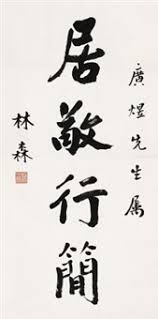 廣煜先生屬
居敬行簡
林森